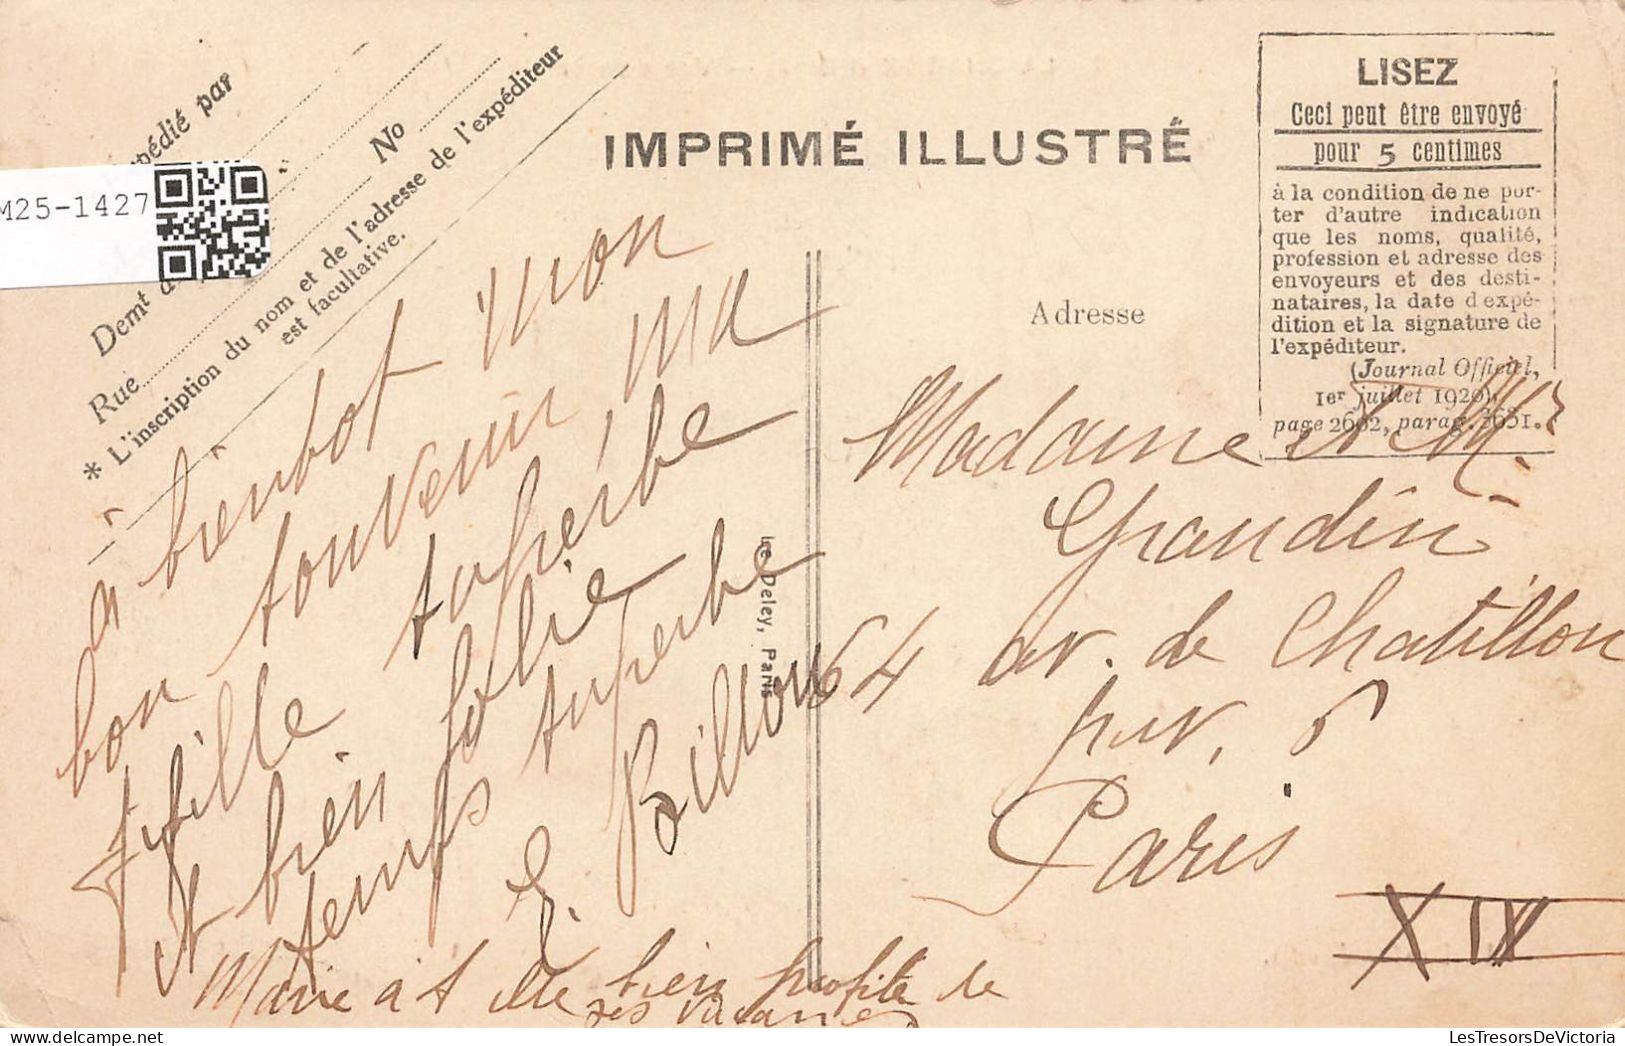 pédié par
No
Demt à
Rue
* L'inscription du nom et de l'adresse de l'expéditeur
est facultative.
M25-1427
IMPRIMÉ ILLUSTRÉ
LISEZ
Ceci peut être envoyé
pour 5 centimes
à la condition de ne por-
ter d'autre indication
que les noms, qualité,
profession et adresse des
envoyeurs et des desti-
nataires, la date d'expé-
dition et la signature de
l'expéditeur.
(Journal Officiel,
1er juillet 1920,
page 2662, parag. 3651.
Adresse
à bientot mon
bon souvenir ma
fille superbe
et bien jolie
temps superbe
E. Billon
Marie a t elle bien profité de
ses vacances
Ire Deley, Paris
Madame et Mr
Grandin
64 av. de Chatillon
Paris
XIV
LesTresorsDeVictoria.com